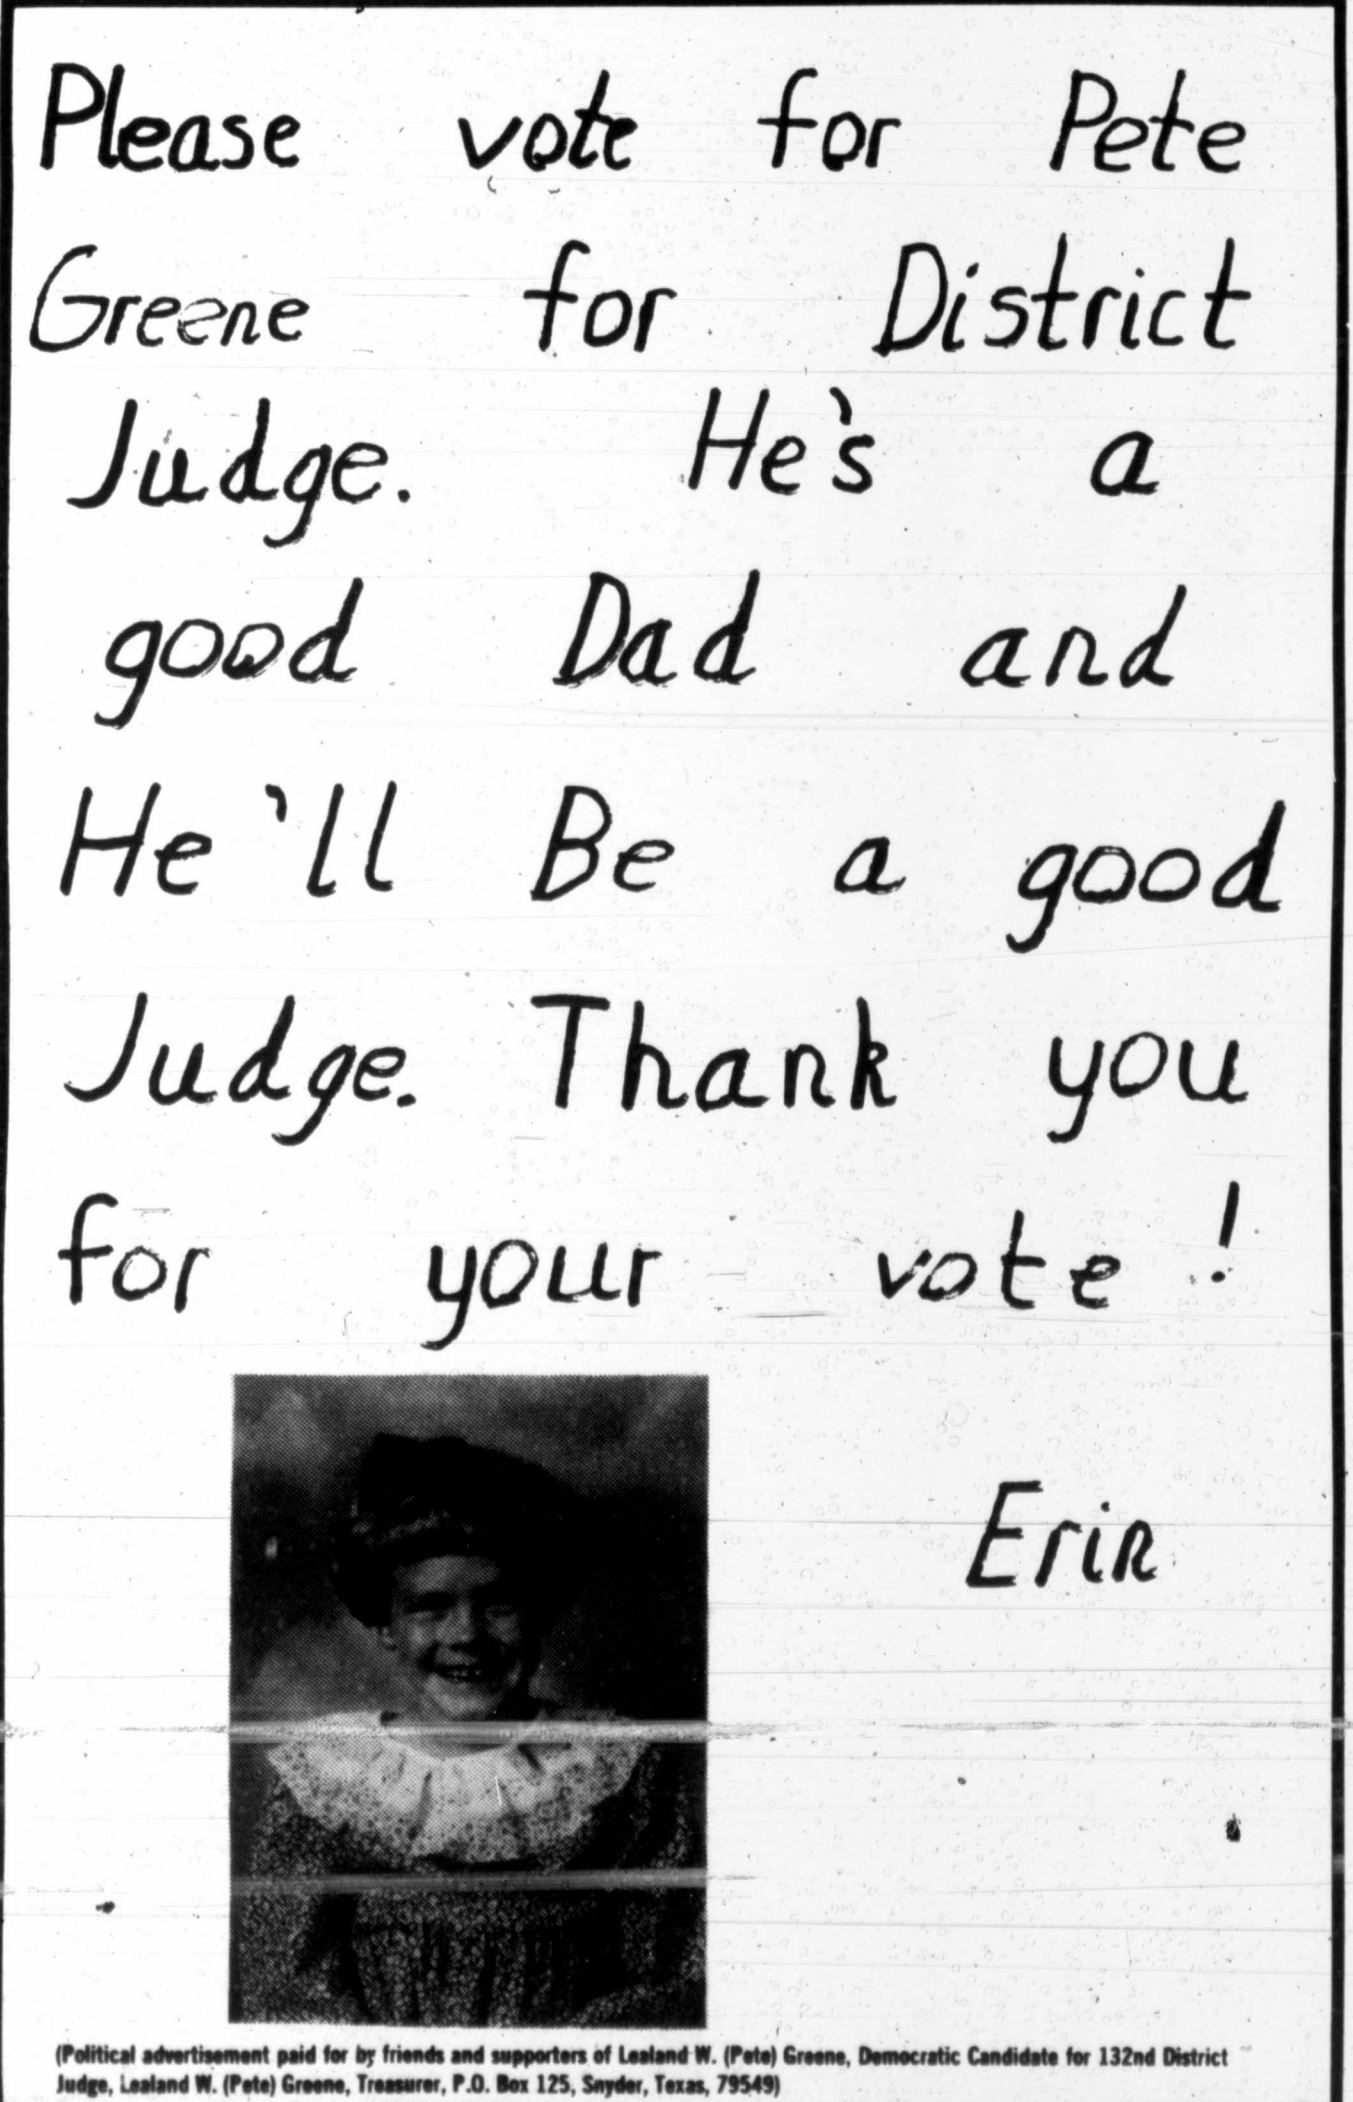 Please vote for Pete
Greene for District
Judge. He's a
good Dad and
He'll Be a good
Judge. Thank you
for your vote!
Erin
(Political advertisement paid for by friends and supporters of Lealand W. (Pete) Greene, Democratic Candidate for 132nd District
Judge, Lealand W. (Pete) Greene, Treasurer, P.O. Box 125, Snyder, Texas, 79549)